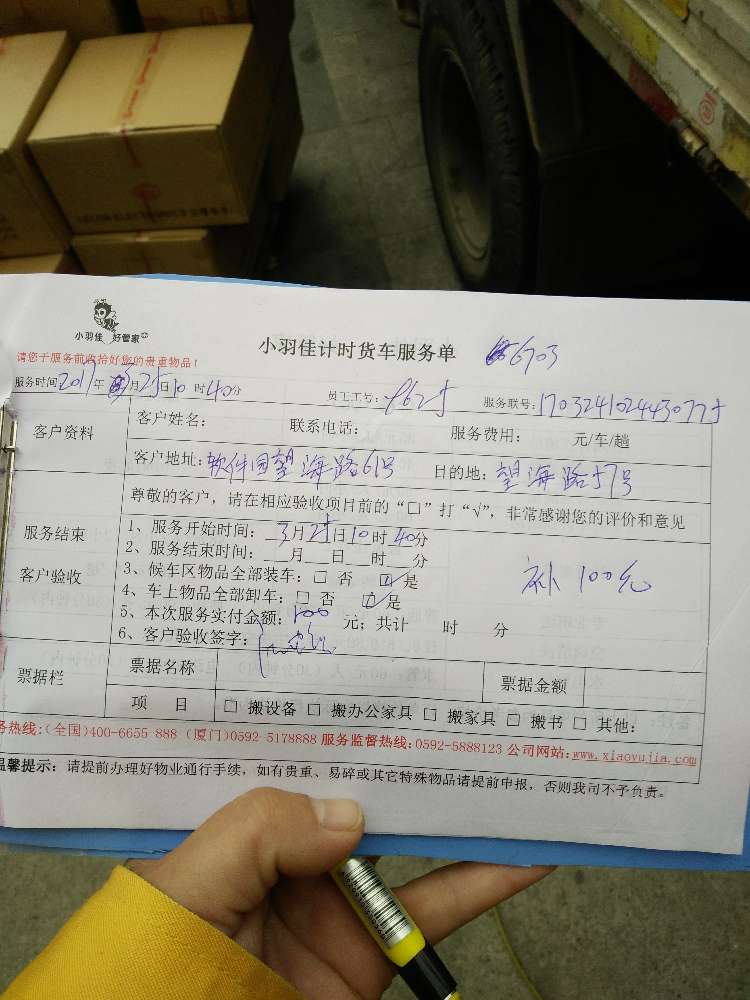 小羽佳 好管家
小羽佳计时货车服务单 6703
请您于服务前收拾好您的贵重物品！
服务时间2017年3月25日10时40分 员工工号: 服务联号:
客户资料 客户姓名: 联系电话: 服务费用: 元/车/趟
客户地址: 软件园望海路61号 目的地: 望海路57号
尊敬的客户，请在相应验收项目前的“□”打“√”，非常感谢您的评价和意见
服务结束
客户验收
1、服务开始时间: 3月25日10时40分
2、服务结束时间: __月__日__时__分
3、候车区物品全部装车: □ 否 ☑ 是
补100元
4、车上物品全部卸车: □ 否 ☑ 是
5、本次服务实付金额: 100 元; 共计 时 分
6、客户验收签字:
票据栏 票据名称 票据金额
项 目 □ 搬设备 □ 搬办公家具 □ 搬家具 □ 搬书 □ 其他:
务热线:(全国)400-6655 888 (厦门)0592-5178888 服务监督热线:0592-5888123 公司网站:www.xiaoyujia.com
温馨提示: 请提前办理好物业通行手续, 如有贵重、易碎或其它特殊物品请提前申报, 否则我司不予负责。